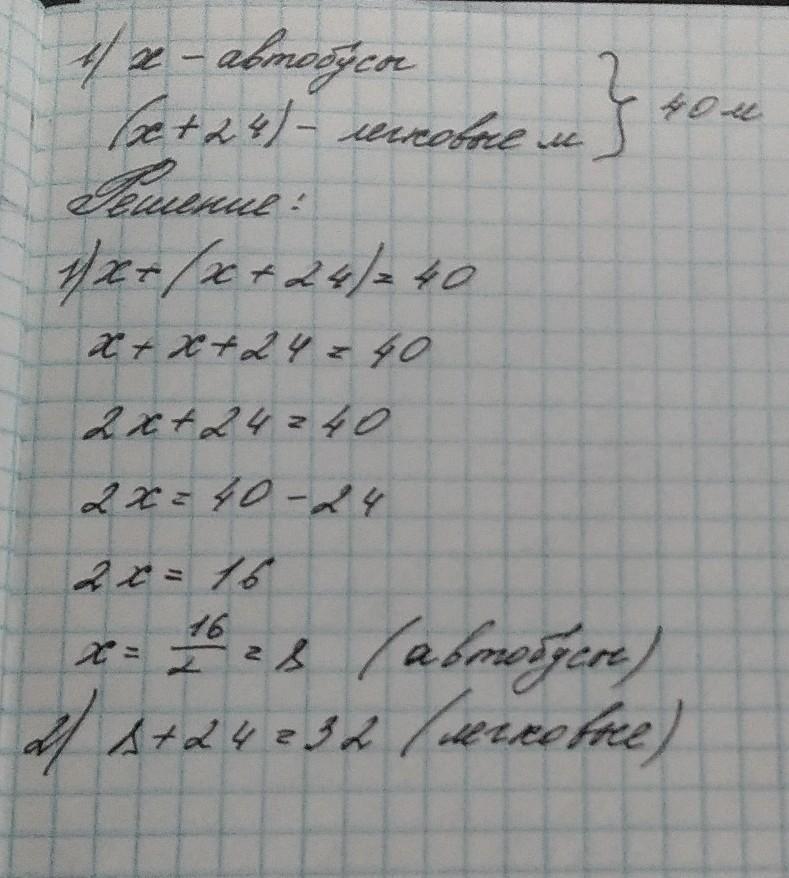 1) x – автобусы
(x + 24) – легковые м } 40 м
Решение:
1) x + (x + 24) = 40
x + x + 24 = 40
2x + 24 = 40
2x = 40 – 24
2x = 16
x = 16/2 = 8 (автобусы)
2) 8 + 24 = 32 (легковые)